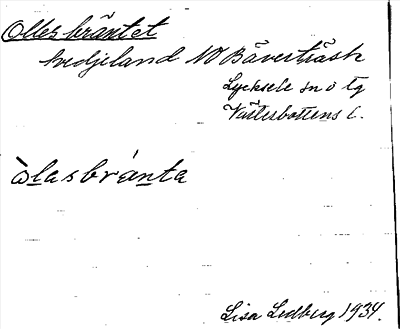 Ollesbräntet
Svedjeland NO Bäverträsk
Lycksele sn o tg
Västerbottens l.
òlasbránta
Lisa Lidberg 1934.